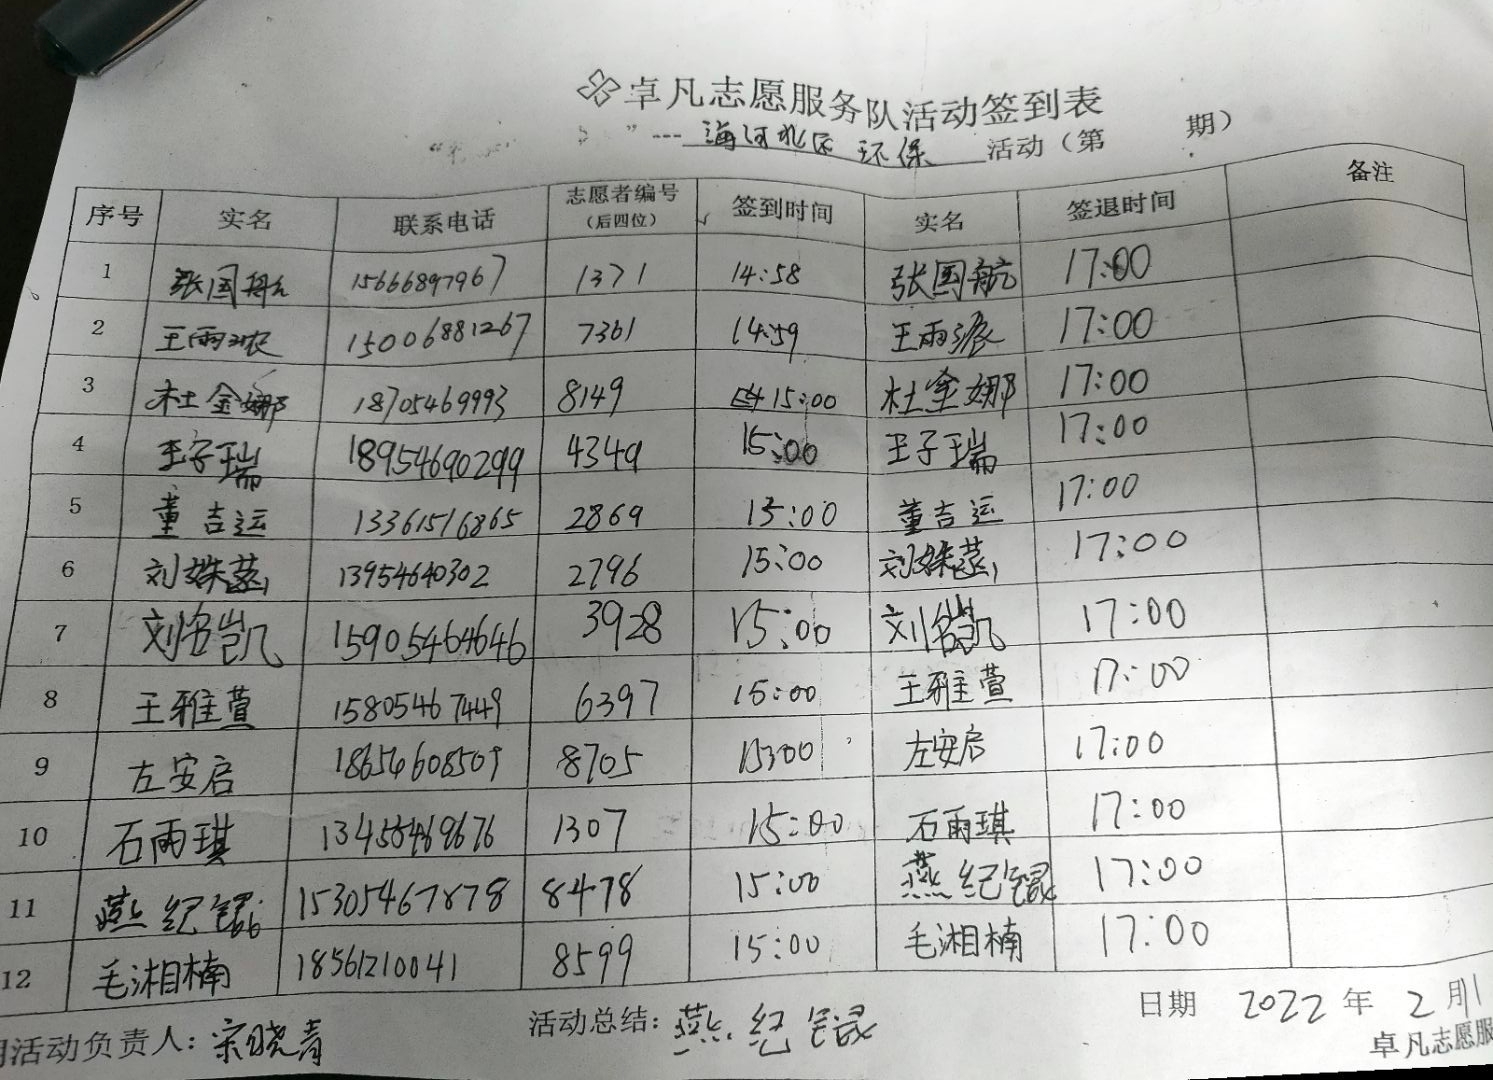 卓凡志愿服务队活动签到表
---海河北区 环保 活动（第 期）
序号 实名 联系电话 志愿者编号（后四位） 签到时间 实名 签退时间 备注
1 张国航 15666897967 1371 14:58 张国航 17:00
2 王雨浓 15006881267 7361 14:59 王雨浓 17:00
3 杜金娜 18705469993 8149 15:00 杜金娜 17:00
4 王子瑞 18954690299 4349 15:00 王子瑞 17:00
5 董吉运 13361516865 2869 15:00 董吉运 17:00
6 刘姝菡 13954640302 2796 15:00 刘姝菡 17:00
7 刘名凯 15905464646 3928 15:00 刘名凯 17:00
8 王雅萱 15805467449 6397 15:00 王雅萱 17:00
9 左安启 18654608509 8705 15:00 左安启 17:00
10 石雨琪 1307 15:00 石雨琪 17:00
11 燕纪 15305467878 8478 15:00 燕纪 17:00
12 毛湘楠 18561210041 8599 15:00 毛湘楠 17:00
活动负责人：宋晓青 活动总结：燕纪 日期 2022 年 2 月
卓凡志愿服